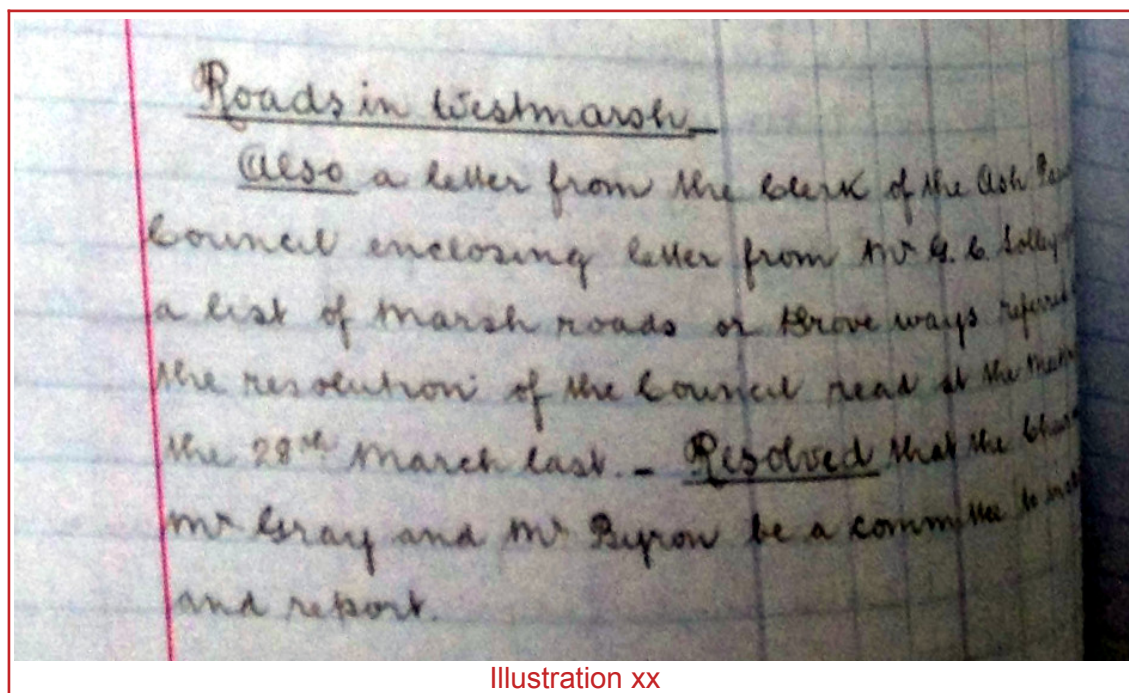 Roads in Westmarsh
Also a letter from the Clerk of the Ash
Council enclosing letter from Mr G. C. Solley
a list of Marsh roads or Drove ways referred
the resolution of the Council read at the
the 28th March last. - Resolved that the
Mr Gray and Mr Byron be a committee to
and report.
Illustration xx